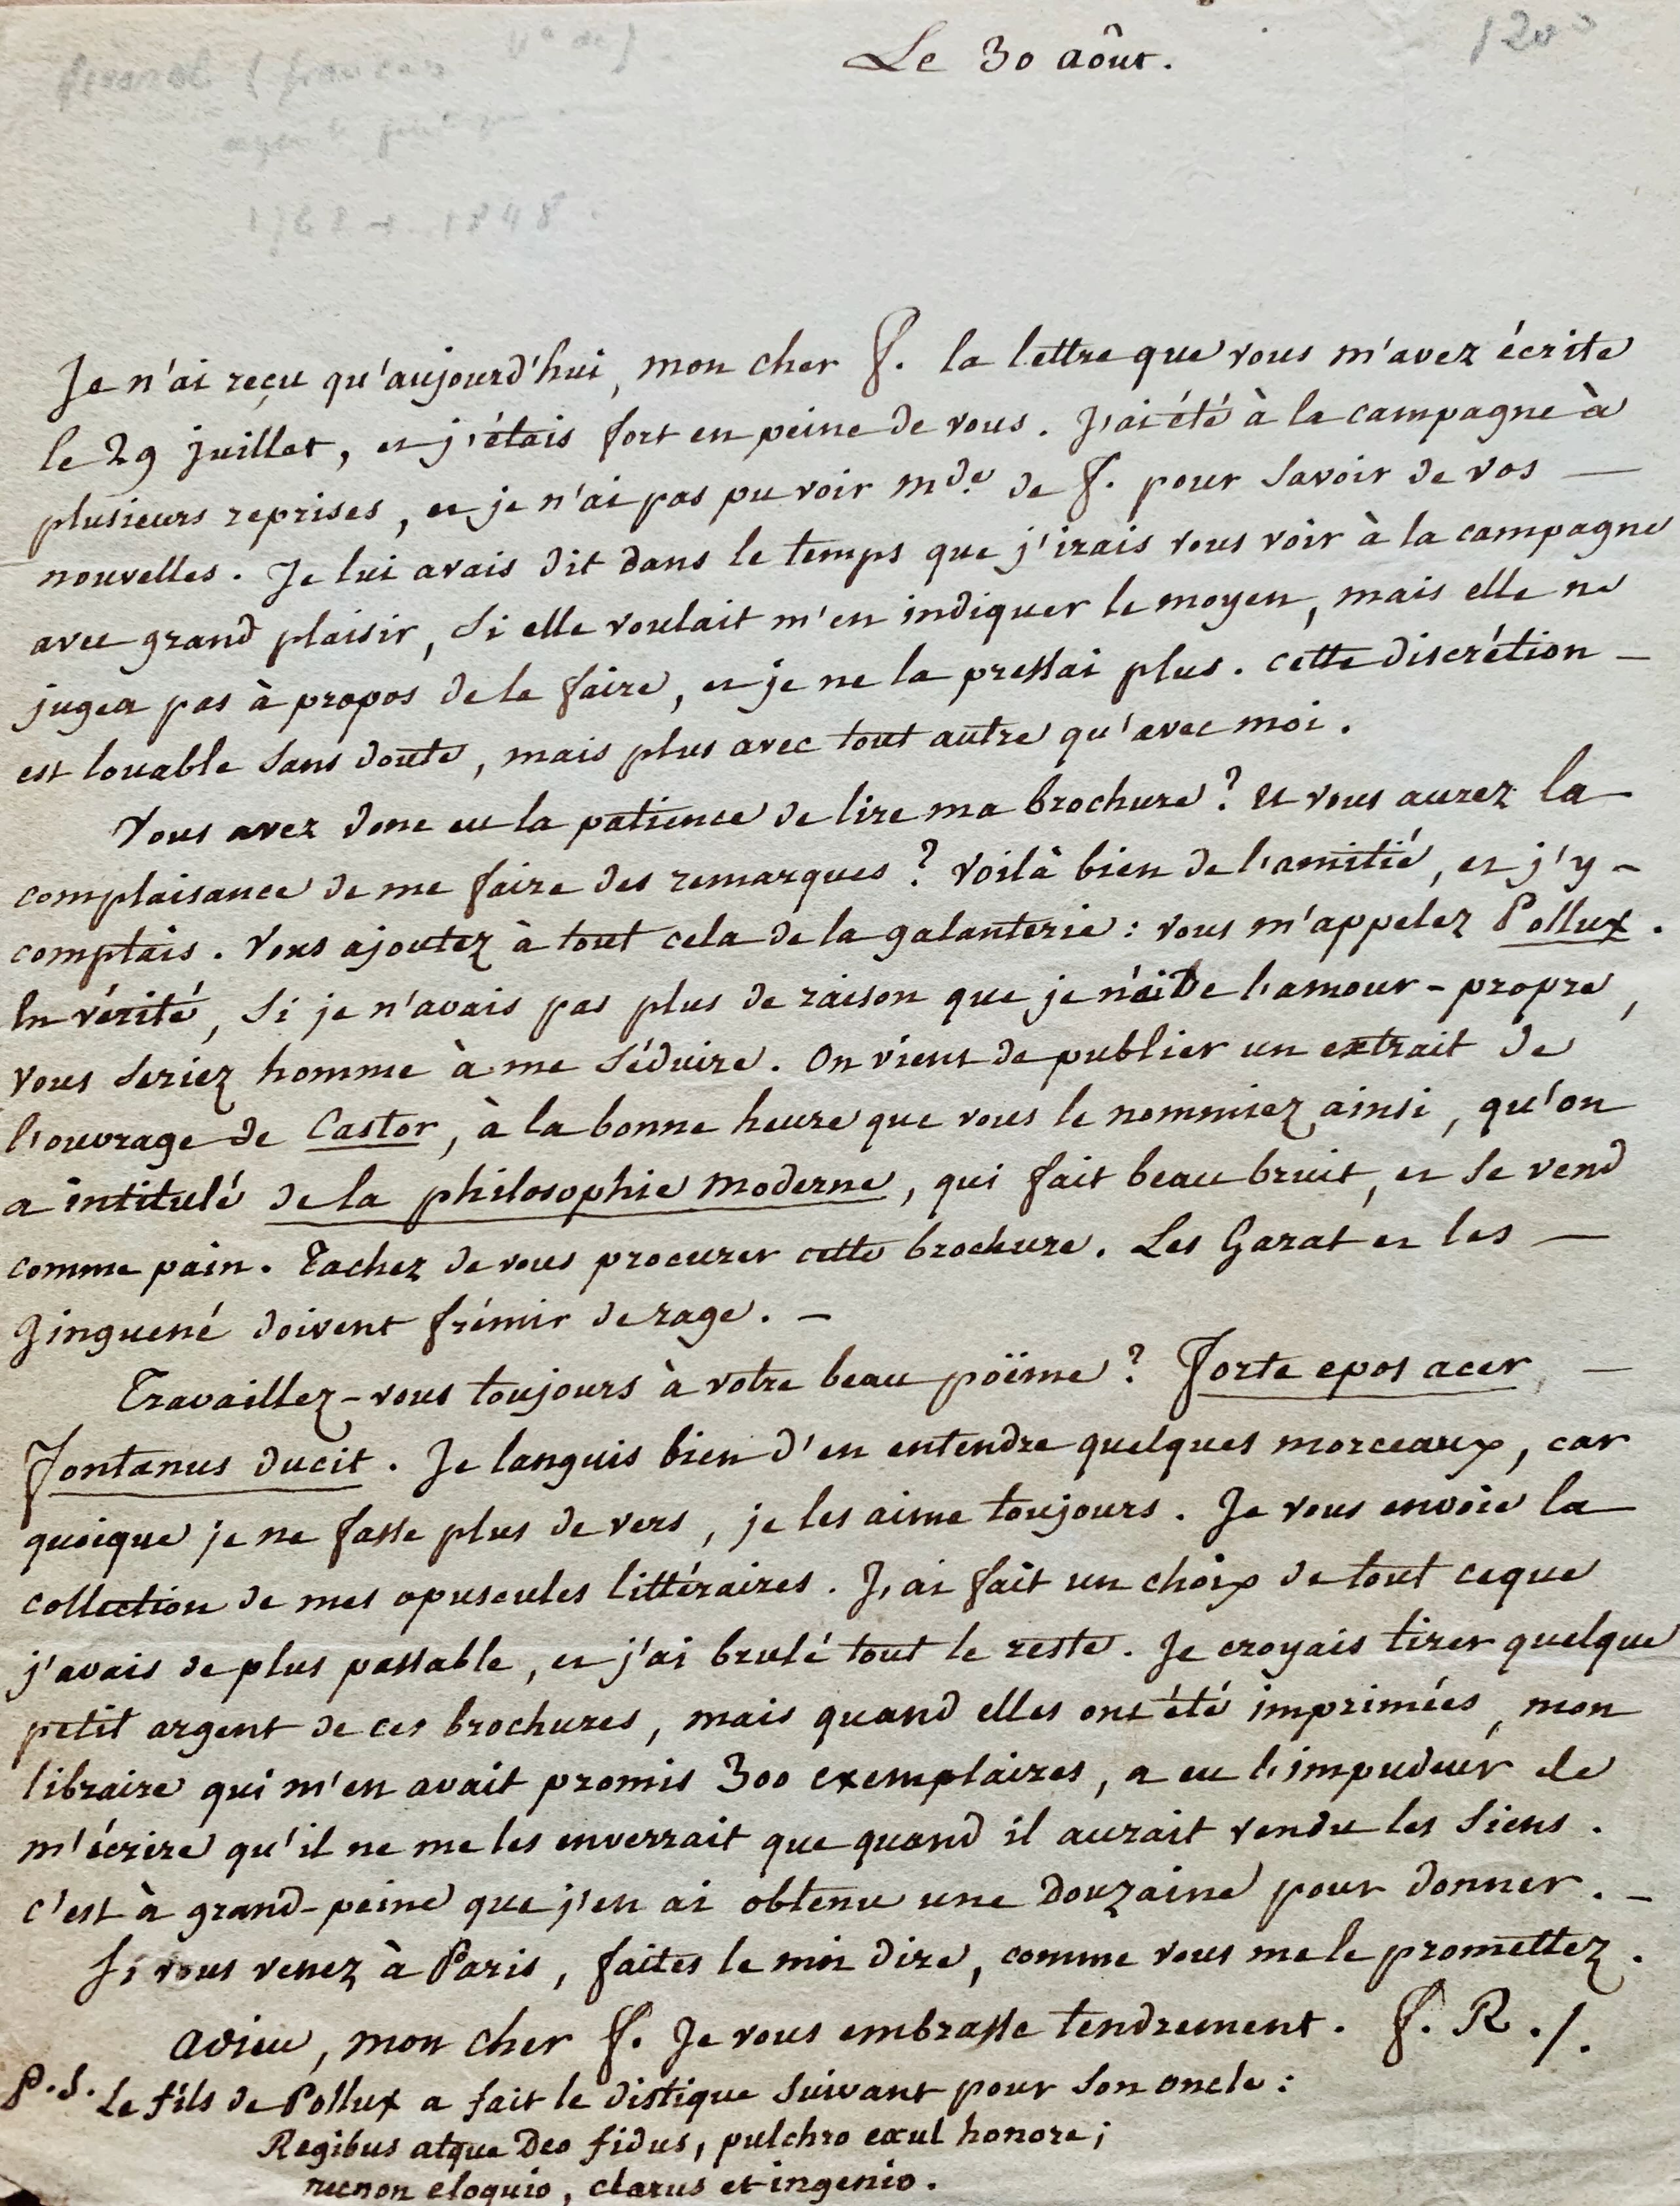 Le 30 août.
1200
1768 + 1848.
Je n'ai reçu qu'aujourd'hui, mon cher F. la lettre que vous m'avez écrite
le 29 juillet, et j'étais fort en peine de vous. J'ai été à la campagne à
plusieurs reprises, et je n'ai pas pu voir mde. de F. pour savoir de vos —
nouvelles. Je lui avais dit dans le temps que j'irais vous voir à la campagne
avec grand plaisir, si elle voulait m'en indiquer le moyen, mais elle ne
jugea pas à propos de le faire, et je ne la pressai plus. cette discrétion —
est louable sans doute, mais plus avec tout autre qu'avec moi.
Vous avez donc eu la patience de lire ma brochure? et vous aurez la
complaisance de me faire des remarques? voilà bien de l'amitié, et j'y —
comptais. Vous ajoutez à tout cela de la galanterie: vous m'appelez Pollux.
En vérité, si je n'avais pas plus de raison que je n'ai de l'amour-propre,
vous seriez homme à me séduire. On vient de publier un extrait de
l'ouvrage de Castor, à la bonne heure que vous le nommiez ainsi, qu'on
a intitulé de la philosophie moderne, qui fait beau bruit, et se vend
comme pain. Tachez de vous procurer cette brochure. Les Garat et les —
Ginguené doivent frémir de rage. —
Travaillez-vous toujours à votre beau poëme? Forte epos acer, —
Fontanus ducit. Je languis bien d'en entendre quelques morceaux, car
quoique je ne fasse plus de vers, je les aime toujours. Je vous envoie la
collection de mes opuscules littéraires. J'ai fait un choix de tout ce que
j'avais de plus passable, et j'ai brulé tout le reste. Je croyais tirer quelque
petit argent de ces brochures, mais quand elles ont été imprimées, mon
libraire qui m'en avait promis 300 exemplaires, a eu l'impudeur de
m'écrire qu'il ne me les enverrait que quand il aurait vendu les siens.
c'est à grand-peine que j'en ai obtenu une douzaine pour donner. —
Si vous venez à Paris, faites le moi dire, comme vous me le promettez.
adieu, mon cher F. Je vous embrasse tendrement. F. R. /.
P.S. Le fils de Pollux a fait le distique suivant pour son oncle:
Regibus atque Deo fidus, pulchro exul honore;
necnon eloquio, clarus et ingenio.